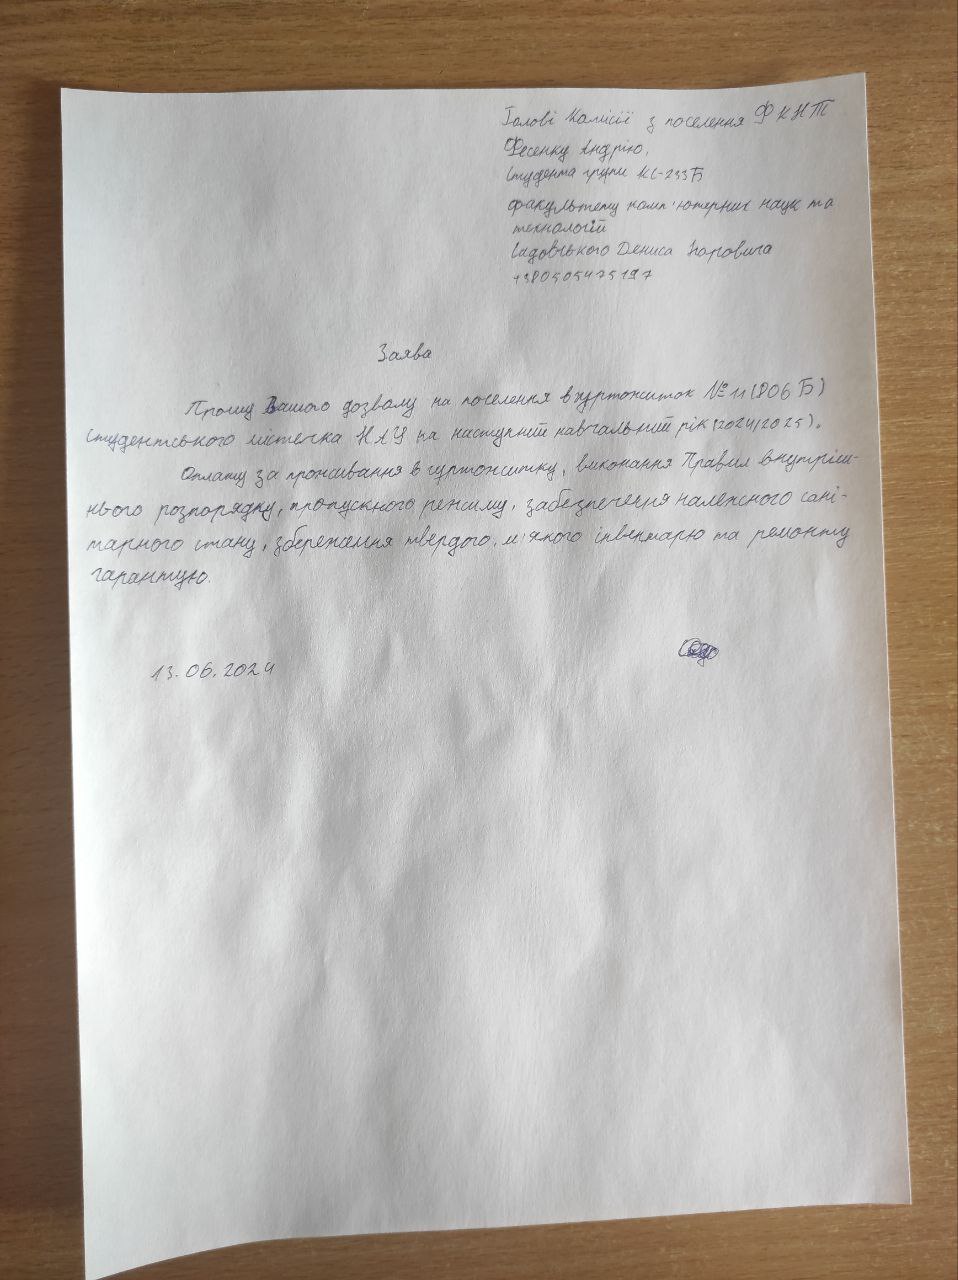 Голові Комісії з поселення ФКНТ
Фесенку Андрію,
Студента групи КС-233Б
факультету комп'ютерних наук та
технологій
Садовського Дениса Ігоровича
+380505475197
Заява
Прошу Вашого дозволу на поселення в гуртожиток №11 (806Б)
студентського містечка НАУ на наступний навчальний рік (2024/2025).
Оплату за проживання в гуртожитку, виконання Правил внутріш-
нього розпорядку, пропускного режиму, забезпечення належного сані-
тарного стану, збереження твердого, м'якого інвентарю та ремонту
гарантую.
13.06.2024